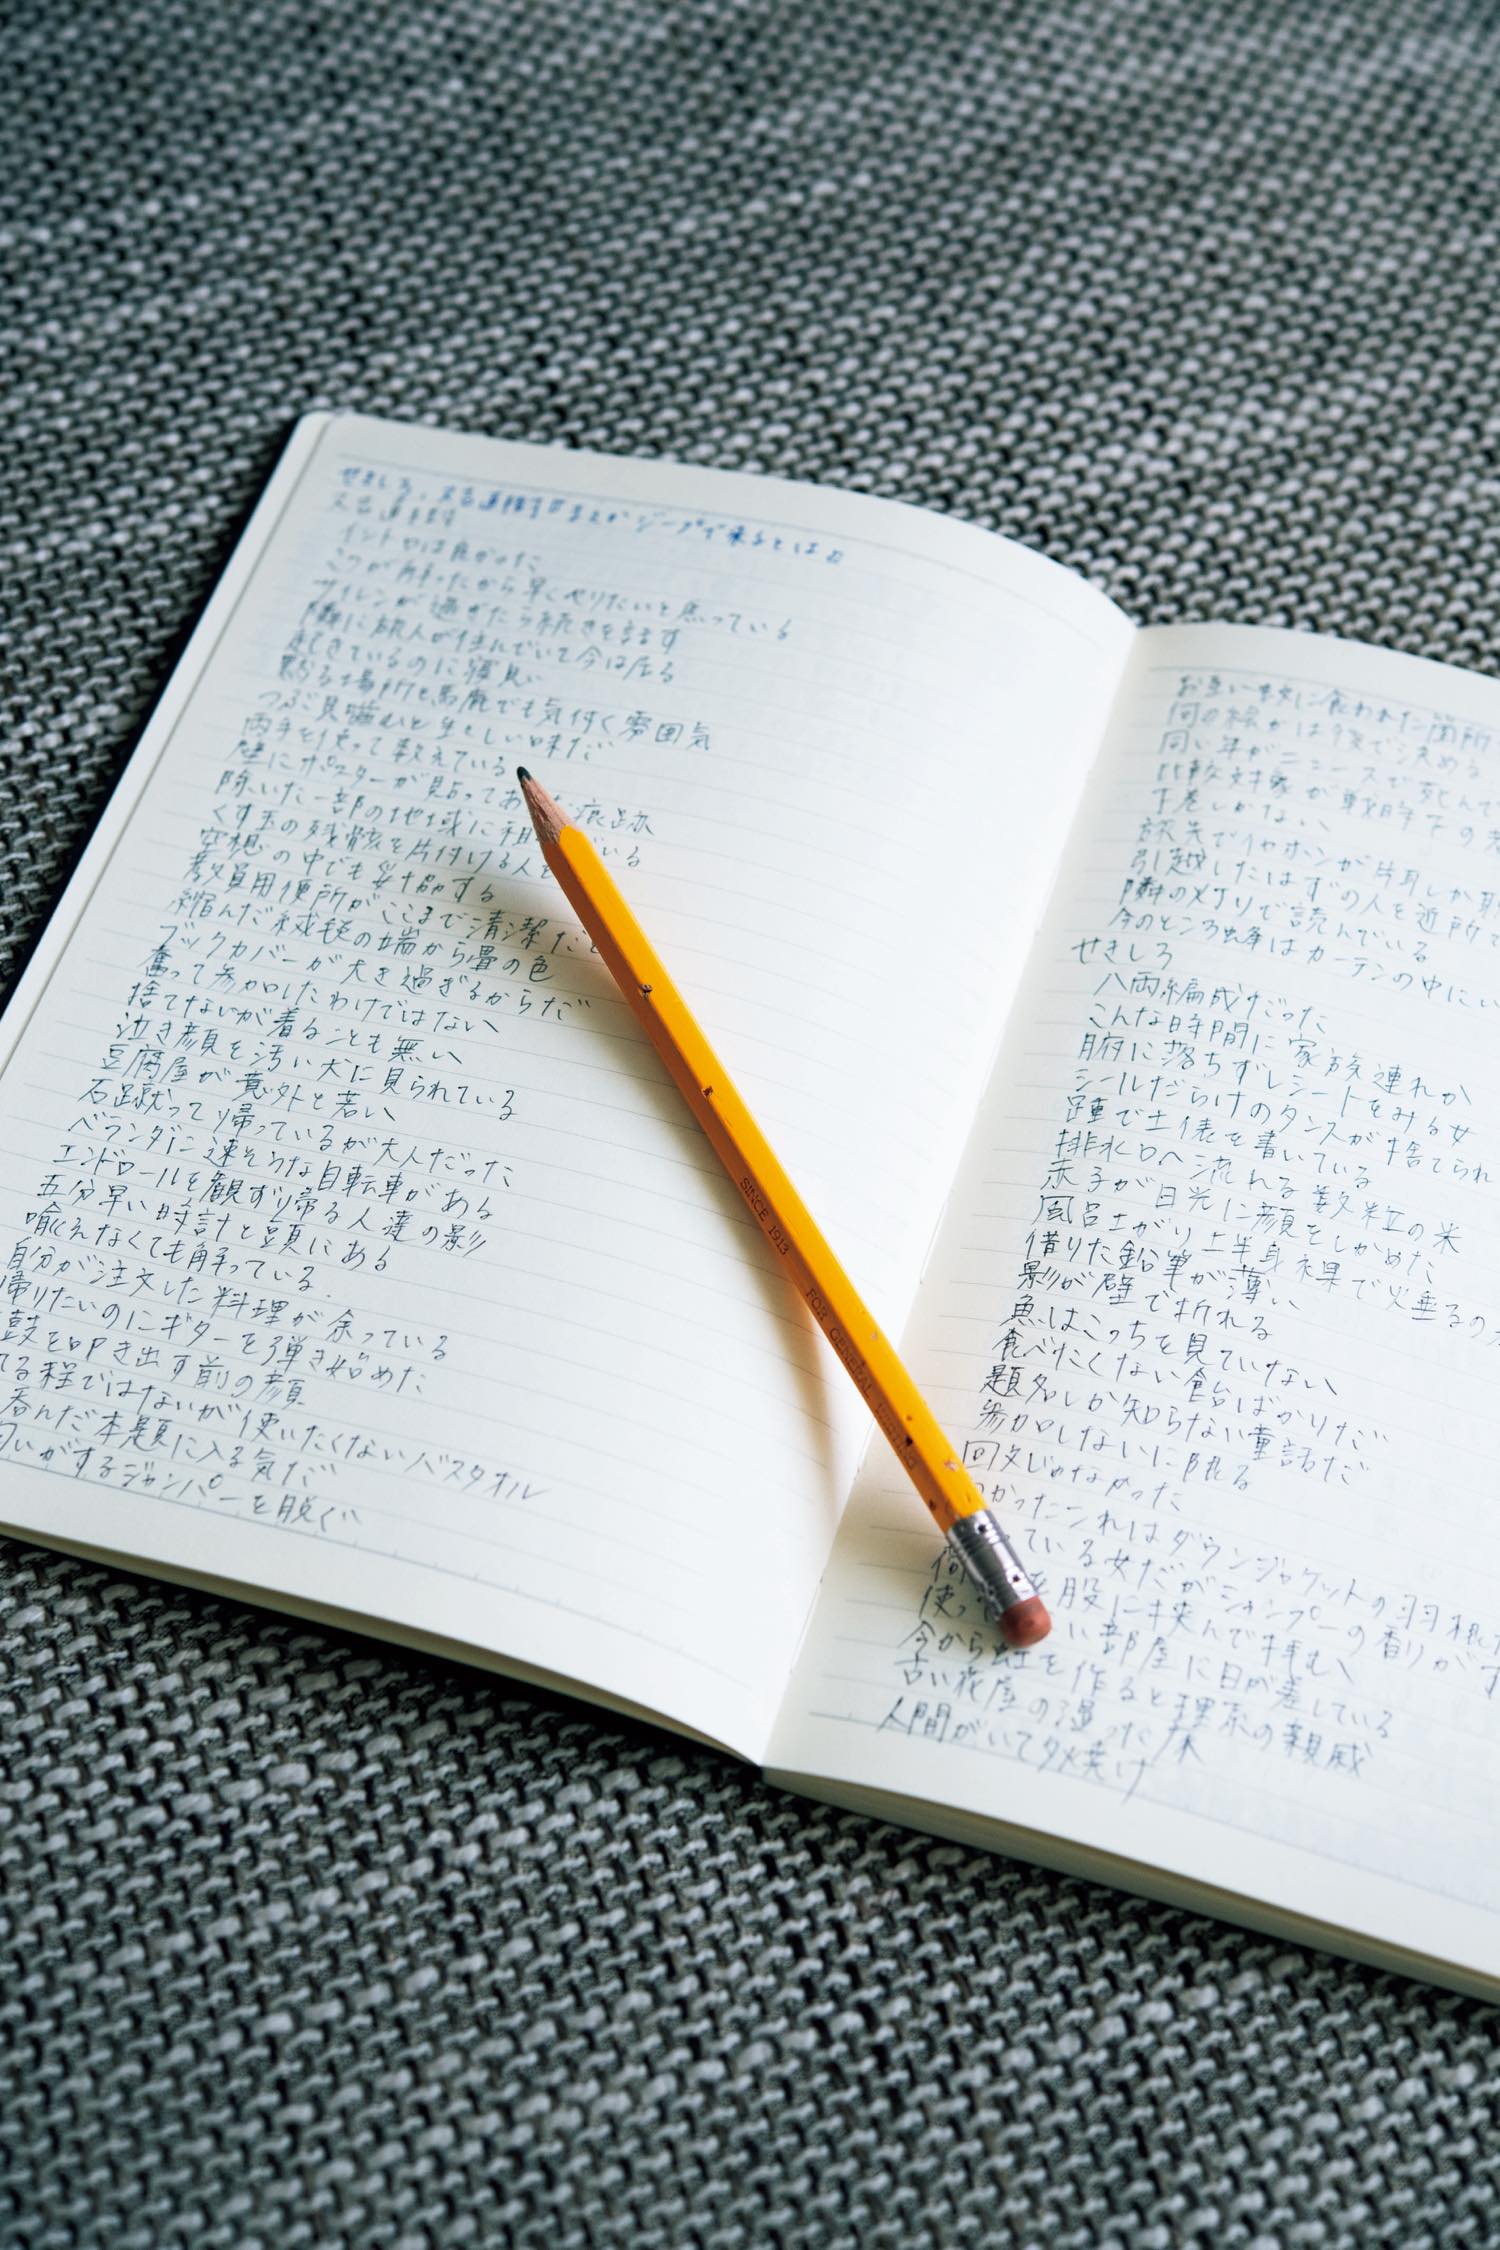 せきしろ、又吉直樹『まさかジープで来るとは』
又吉直樹
イントロは良かった
こつが解ったから早くやりたいと焦っている
サイレンが過ぎたら続きを話す
隣に旅人が住んでいて今は居る
起きているのに寝息
黙る場所と馬鹿でも気付く雰囲気
つぶ貝噛むと生々しい味だ
両手を使って数えている
壁にポスターが貼ってあ 痕跡
除いた一部の地域に祖 いる
くす玉の残骸を片付ける人を
空想の中でも妥協する
教員用便所がここまで清潔だと
縮んだ絨毯の端から畳の色
ブックカバーが大き過ぎるからだ
奮って参加したわけではない
捨てないが着ることも無い
泣き顔を汚い犬に見られている
豆腐屋が意外と若い
石蹴って帰っているが大人だった
ベランダに速そうな自転車がある
エンドロールを観ず帰る人達の影
五分早い時計と頭にある
喩えなくても解っている
自分が注文した料理が余っている
帰りたいのにギターを弾き始めた
鼓を叩き出す前の顔
てる程ではないが使いたくないバスタオル
呑んだ本題に入る気だ
匂いがするジャンパーを脱ぐ
お互い蚊に食われた箇所
何の絵かは後で決める
同い年がニュースで死んで
比較対象が戦時下の
下巻しかない
旅先でイヤホンが片耳しか
引越したはずの人を近所で
隣の灯りで読んでいる
今のところ蜂はカーテンの中にい
せきしろ
八両編成だった
こんな時間に家族連れか
腑に落ちずレシートをみる女
シールだらけのタンスが捨てられ
踵で土俵を書いている
排水口へ流れる数粒の米
赤子が日光に顔をしかめた
風呂上がり上半身裸で火垂るの
借りた鉛筆が薄い
影が壁で折れる
魚はこっちを見ていない
食べたくない飴ばかりだ
題名しか知らない童話だ
参加しないに限る
回文じゃなかった
かったこれはダウンジャケットの羽根だ
ている女だがシャンプーの香りがす
を股に挟んで拝む
使っ い部屋に日が差している
今から虹を作ると理系の親戚
古い花屋の湿った床
人間がいて夕焼け
SINCE 1913
FOR GENERAL